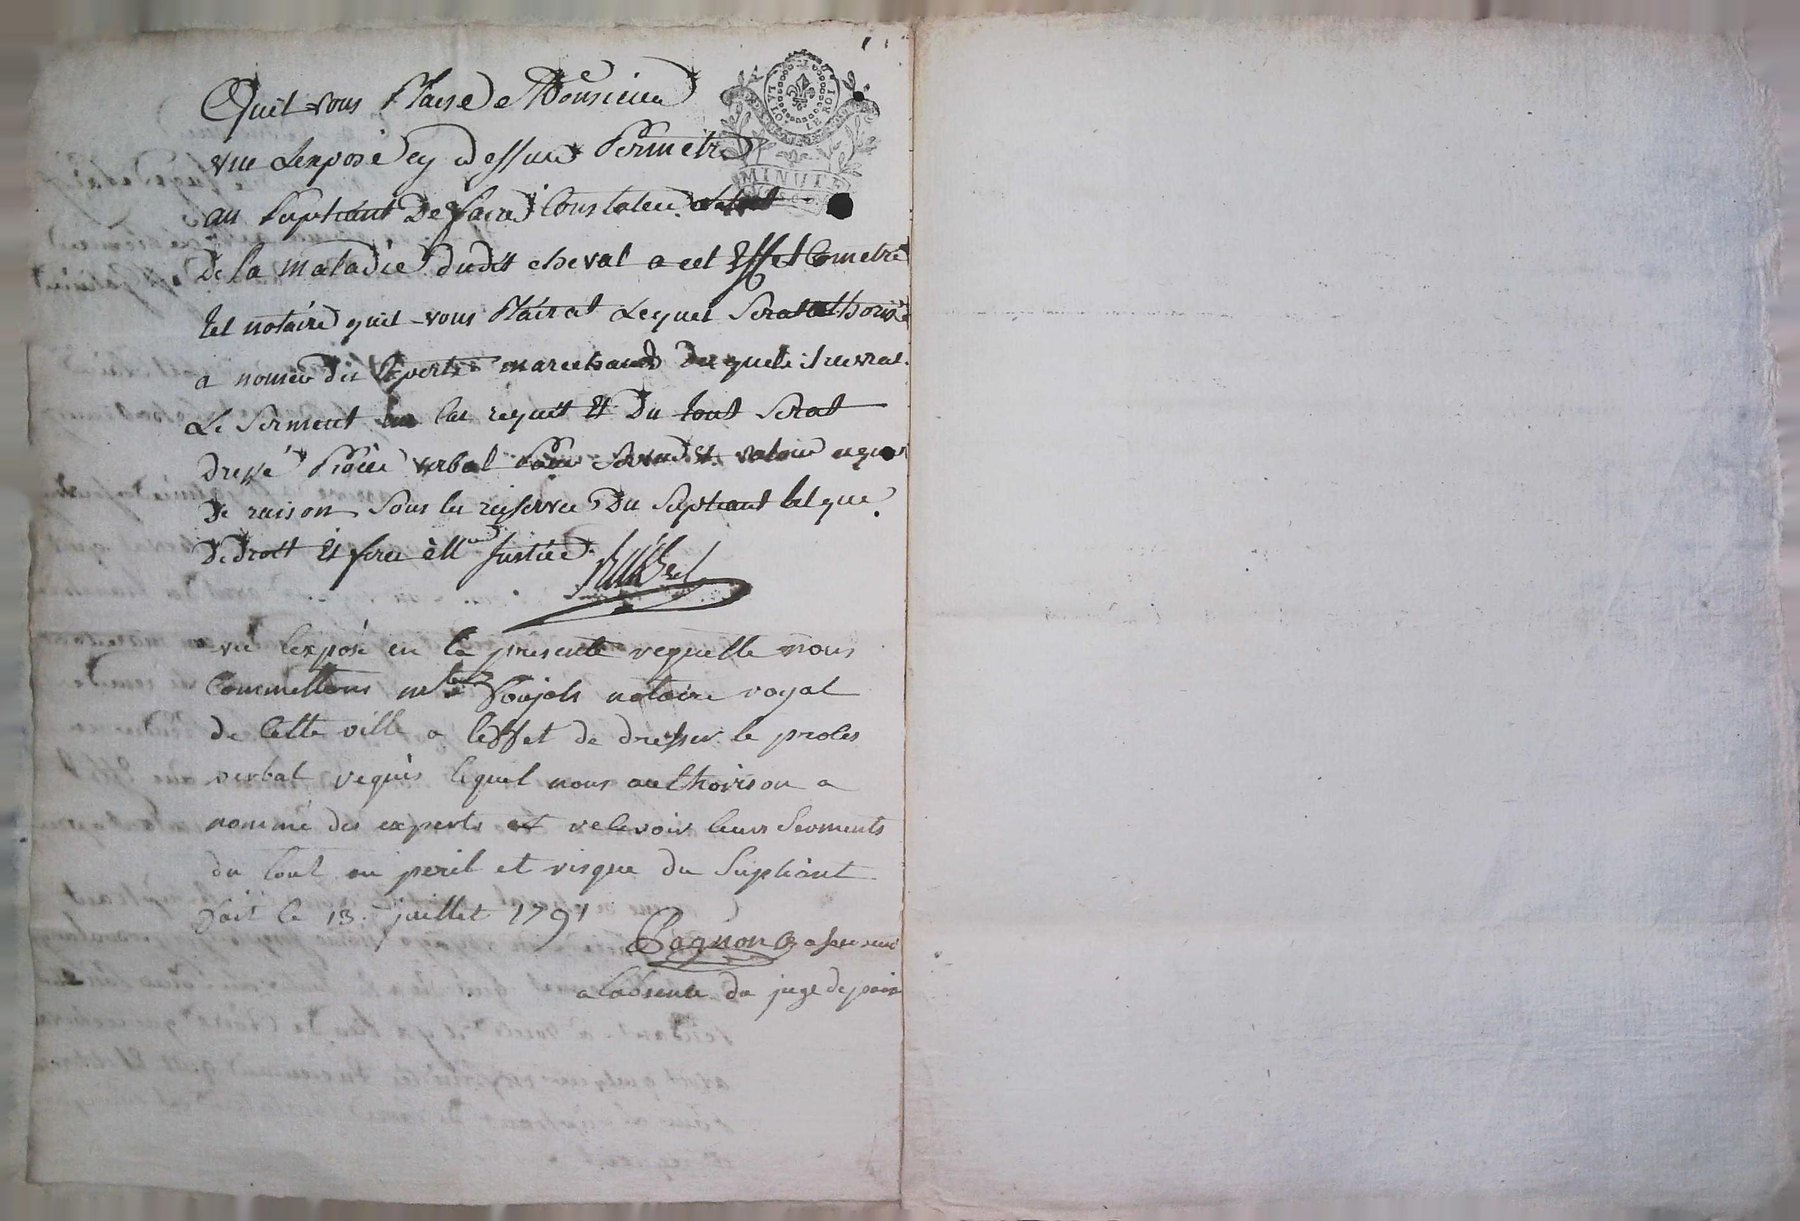 Quil vous Plaise Monsieur
vue Lexposé cy dessus Permetre
au supliant De faire Constater
De la maladie dudit cheval a cet Effet Cometre
tel notaire quil vous Plairat Lequel Serat authorisé
a nomer des Experts marechaux desquels il recevrat
Le Serment en tel requit Et Du tout Serat
dressé Procés verbal Pour Servir Et valoir a que
De raison Sous les reserves Du Supliant tel que
De droit Et fere Justice
vu lexposé en la presente requette nous
Commettons me Poujols notaire royal
de cette ville a leffet de dresser le proces
verbal requis lequel nous authorison a
nommé des experts et recevoir leurs Serments
du tout au peril et risque du Supliant
fait le 13 juillet 1791
Pagnon assesseur
a labsence du juge de paix
LA LOI
LE ROI
MINUTE